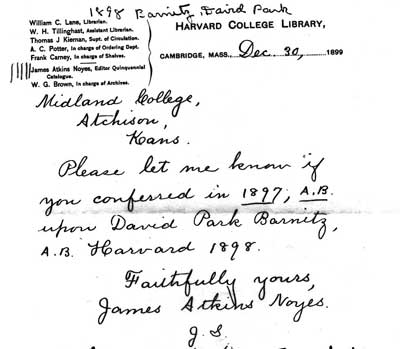 1898 Barnitz, David Park
William C. Lane, Librarian.
W. H. Tillinghast, Assistant Librarian.
Thomas J Kiernan, Supt. of Circulation.
A. C. Potter, In charge of Ordering Dept.
Frank Carney, In charge of Shelves.
James Atkins Noyes, Editor Quinquennial
Catalogue.
W. G. Brown, In charge of Archives.
HARVARD COLLEGE LIBRARY,
CAMBRIDGE, MASS. Dec. 30, 1899
Midland College,
Atchison,
Kans.
Please let me know if
you conferred in 1897, A.B.
upon David Park Barnitz,
A.B. Harvard 1898.
Faithfully yours,
James Atkins Noyes.
J. S.